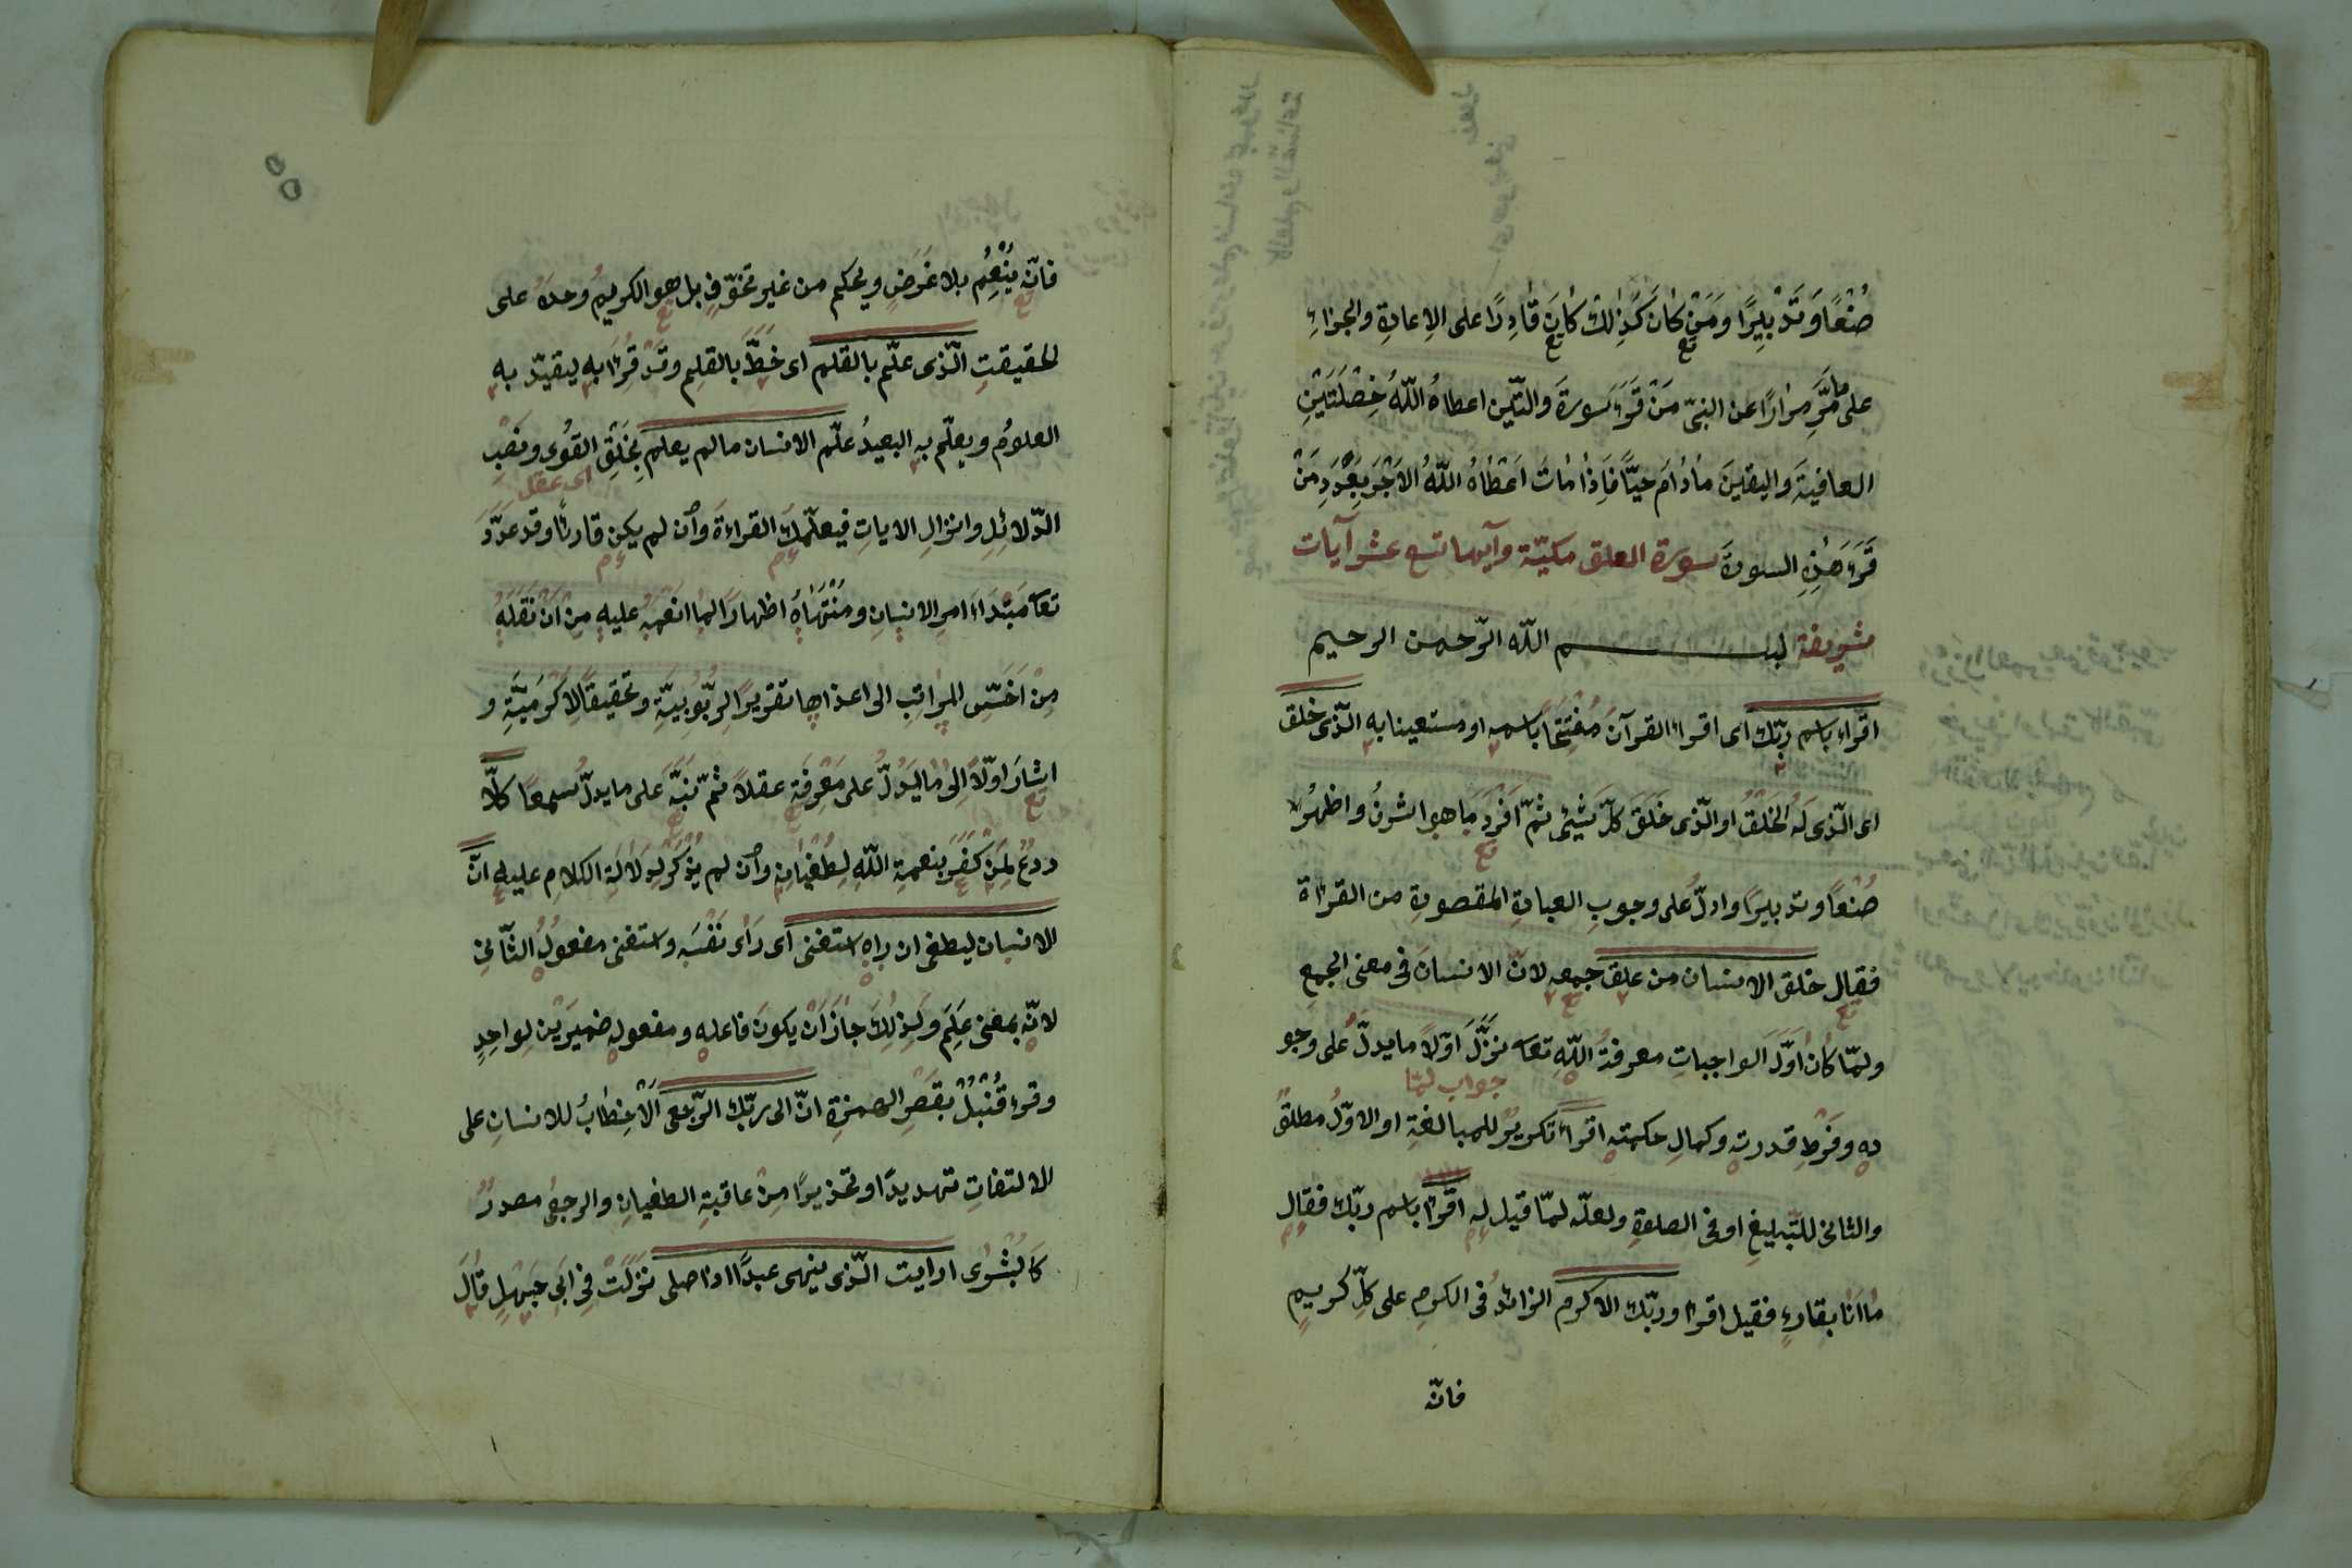 صُنْعًا وَتَدْبِيرًا وَمَنْ كَانَ كَذٰلِكَ كَانَ قَادِرًا على الاعادةِ والجزاءِ
على مَا مَرَّ مرارًا عن النبىّ مَنْ قَرَءَ سورةَ وَالتّين اعطاهُ اللّهُ خِصْلَتَيْنِ
العافيةَ واليقينَ مادامَ حيًّا فَاِذَا مَاتَ اَعْطَاهُ اللّهُ الاَجْرَ بِعَدَدِ مَنْ
قَرَءَ هٰذِهِ السورةَ سورة العلق مكيّة وآيها تسع عشر آيات
شريفة بسم اللّه الرّحمن الرحيم
اقراء باسم ربّك اى اقراء القرآنَ مُفْتَتِحًا باسمه او مستعينا به الّذى خلق
اى الّذى لَهُ الخَلْقُ او الّذى خَلَقَ كلّ شيْئٍ ثمّ اَفْرَدَ مَا هو اشرفُ واظهرُ
صُنْعًا وتدبيرًا وادلّ على وجوبِ العبادةِ المقصودةِ من القراءة
فقال خلق الانسان من علق جمعه لانّ الانسانَ فى معنى الجمعِ
ولمّا كان اوّلَ الواجباتِ معرفةُ اللّهِ تعا نزّلَ اوّلاً ما يدلّ على وجو
جواب لمّا
ده وفَرْطِ قدرته وكمالِ حكمته اقراء تكريرٌ للمبالغةِ او الاوّلُ مطلقٌ
والثانى للتّبليغِ او فى الصلوةِ ولعلّه لمّا قيل له اقرأ باسم ربّك فقال
ما انَا بقارءٍ فقيل اقرأ وربّك الاكرم الزائدُ فى الكرمِ على كلّ كريمٍ
فانّه
٥٥
فانّه يُنْعِمُ بلا غَرَضٍ ويحكم من غير تخوّفٍ بل هو الكريمُ وحدَهُ على
لحقيقتِ الّذى علّم بالقلم اى خَطَّ بالقلمِ وقد قُرِاَ به ليقيّد به
العلومُ ويعلّم به البعيدُ علّم الانسان مالم يعلم بِخَلْقِ القُوٰى ونصبِ
اى عقل
الدّلائلِ وانزالِ الاياتِ فيعلّمك القراءةَ وَاِن لم يكن قارئًا وقد عدّدَ
تعا مَبْدَاءَ امرِ الانسانِ ومُنْتَهَاهُ اظهارًا لما انعمه عليه مِنْ اَنْ نَقَلَهُ
مِنْ اَخَسِّ المراتِبِ الى اعلاها تقريرًا لِرَبُوبيّةِ وتحقيقًا لاكرميّةِ و
اشارَ اوّلاً اِلىٰ ما يَدُلّ على مَعْرِفَةِ عقلاً ثمّ نَبَّهَ على ما يدلّ سمعًا كلّا
ردعٌ لِمَنْ كَفَرَ بنعمةِ اللّهِ لِطُغْيَانِه وَاِن لم يُذْكَرْ لِدَلالَةِ الكلامِ عليه انّ
الانسان ليطغى ان راه استغنى اى رَاٰى نَفْسَه واستغنى مفعولُهُ الثّانِى
لانّه بمعنى عَلِمَ ولِذٰلِكَ جازَ اَنْ يكونَ فاعله ومفعوله ضميرَيْنِ لِواحِدٍ
وقرء قُنْبُلُ بقصر الهمزةِ انّ الى ربّك الرّجعى الْاَخِطَابُ للانسانِ على
الالتفاتِ تهديدًا وتحذيرًا مِنْ عاقبةِ الطغيانِ والرجعى مصدرٌ
كَالبُشْرٰى ارايت الّذى ينهى عبدًا اذا صلى نَزَلَتْ فى ابى جَهْلٍ قَالَ